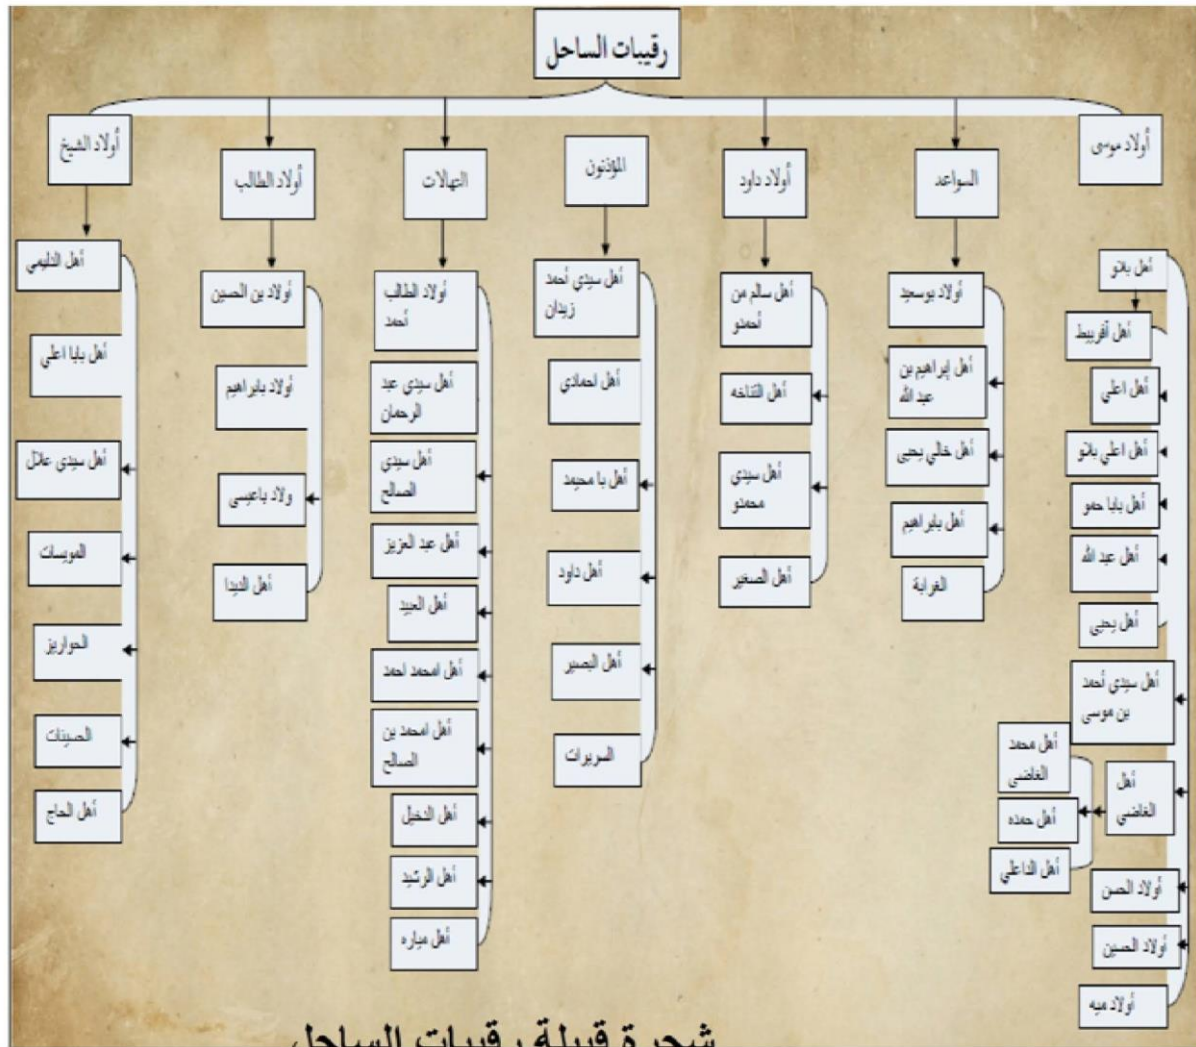 رقيبات الساحل
أولاد موسى
السواعد
أولاد داود
المؤذنون
التهالات
أولاد الطالب
أولاد الشيخ
أهل بلاو
أهل أفريبط
أهل اعلي
أهل اعلي بلاو
أهل بابا حمو
أهل عبد الله
أهل يحيى
أهل سيدي أحمد
بن موسى
أهل
الغاضي
أهل محمد
الغاضى
أهل حمده
أهل الداعلي
أولاد الحسن
أولاد الحسين
أولاد ميه
أولاد بوسعيد
أهل إبراهيم بن
عبد الله
أهل خالي يحيى
أهل بابراهيم
الغرابة
أهل سالم من
أحمدو
أهل التناخه
أهل سيدي
محمدو
أهل الصغير
أهل سيدي أحمد
زيدان
أهل احمادي
أهل با محيمد
أهل داود
أهل البصير
السريرات
أولاد الطالب
أحمد
أهل سيدي عبد
الرحمان
أهل سيدي
الصالح
أهل عبد العزيز
أهل العبيد
أهل امحمد احمد
أهل امحمد بن
الصالح
أهل الدخيل
أهل الرشيد
أهل مياره
أولاد بن الحسين
أولاد بابراهيم
ولاد باعيسى
أهل الديدا
أهل الدليمي
أهل بابا اعلي
أهل سيدي علال
المويسات
الحواريز
الحسينات
أهل الحاج
شجرة قبيلة رقيبات الساحل